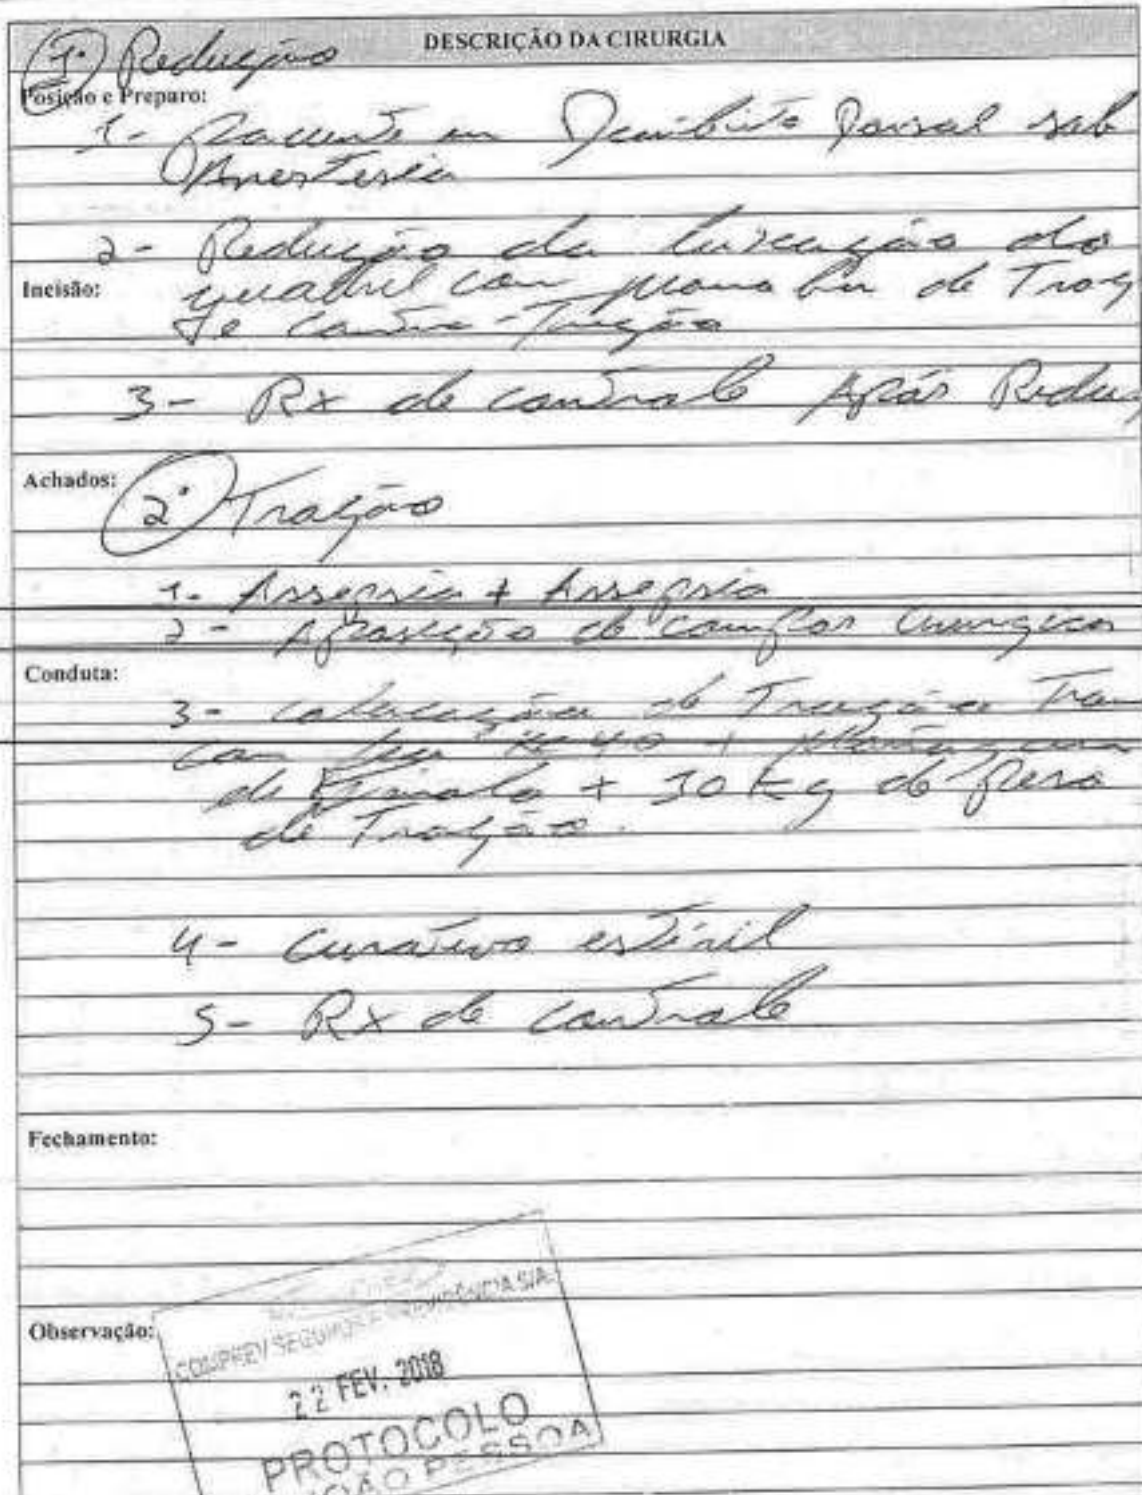 DESCRIÇÃO DA CIRURGIA
1º Redução
Posição e Preparo:
1- Paciente em Decúbito Dorsal sob
Anestesia
2- Redução da luxação do
Incisão:
quadril com manobra de Traç
e contra-Tração
3- Rx de controle Após Redu
Achados:
2º Tração
1- Assepsia + Assepsia
2- Aposição de campos Cirurgicos
Conduta:
3- colocação de Tração Tran
com +
de + 30 Kg de peso
de Tração.
4- Curativo estéril
5- Rx de controle
Fechamento:
Observação:
COMPREV SEGUROS E PREVIDÊNCIA S/A.
22 FEV. 2018
PROTOCOLO
JOÃO PESSOA